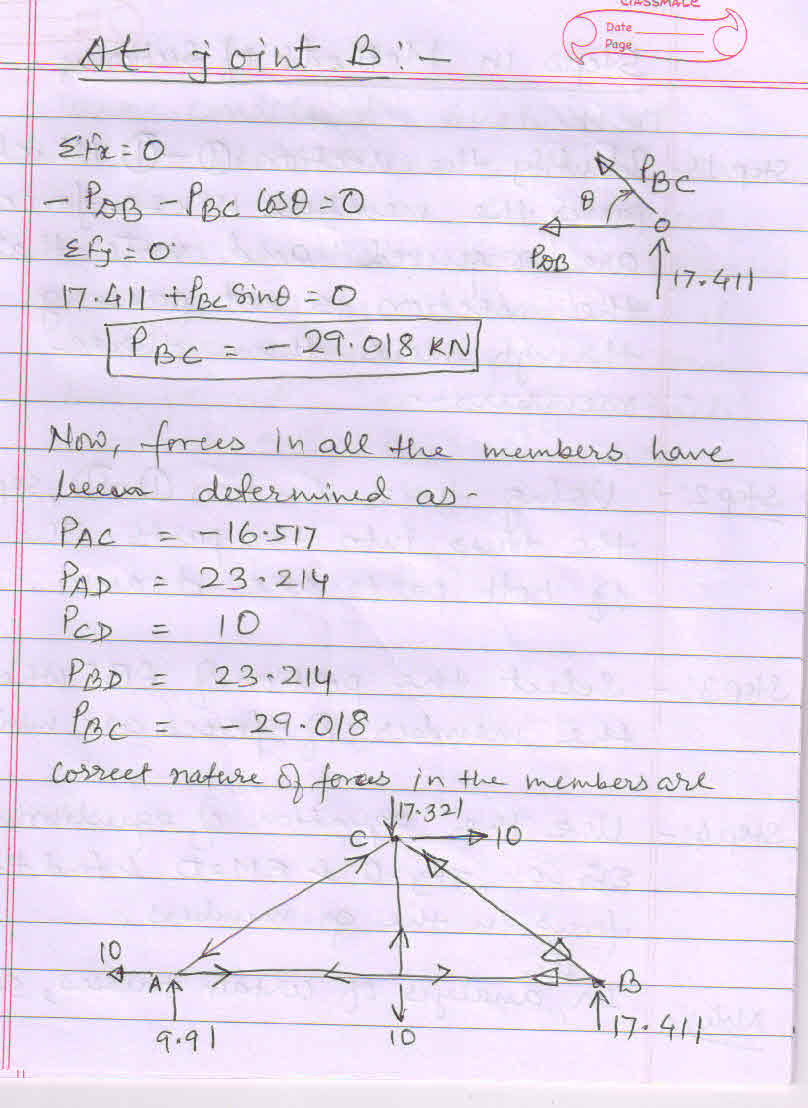 CLASSMATE
Date
Page
At joint B:-
Σfx = 0
- PDB - PBC cosθ = 0
Σfy = 0
17.411 + PBC sinθ = 0
PBC = - 29.018 KN
PBC
θ
PDB
17.411
Now, forces in all the members have
been determined as-
PAC = -16.517
PAD = 23.214
PCD = 10
PBD = 23.214
PBC = -29.018
correct nature of forces in the members are
17.321
C
10
10
A
B
9.91
10
17.411